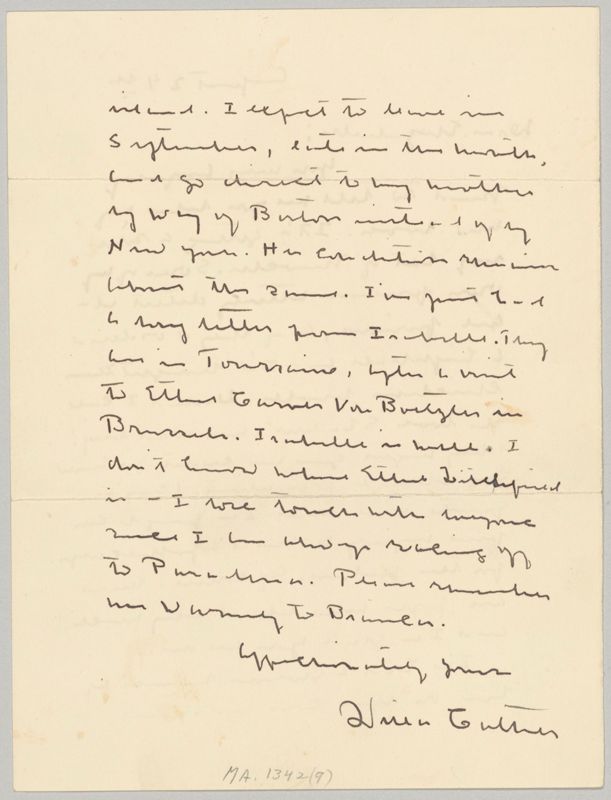 island. I expect to leave in
September, late in the month,
and go direct to my mother
by way of Boston instead of by
New York. Her condition remains
about the same. I've just had
a long letter from Isabelle. They
are in Touraine, after a visit
to Ethel Garver Von Boetzler in
Brussels. Isabelle is well. I
don't know where Ethel Litchfield
is - I lose touch with everyone
since I am always racing off
to Pasadena. Please remember
me warmly to Blanche.
Affectionately yours
Willa Cather
MA. 1342(9)